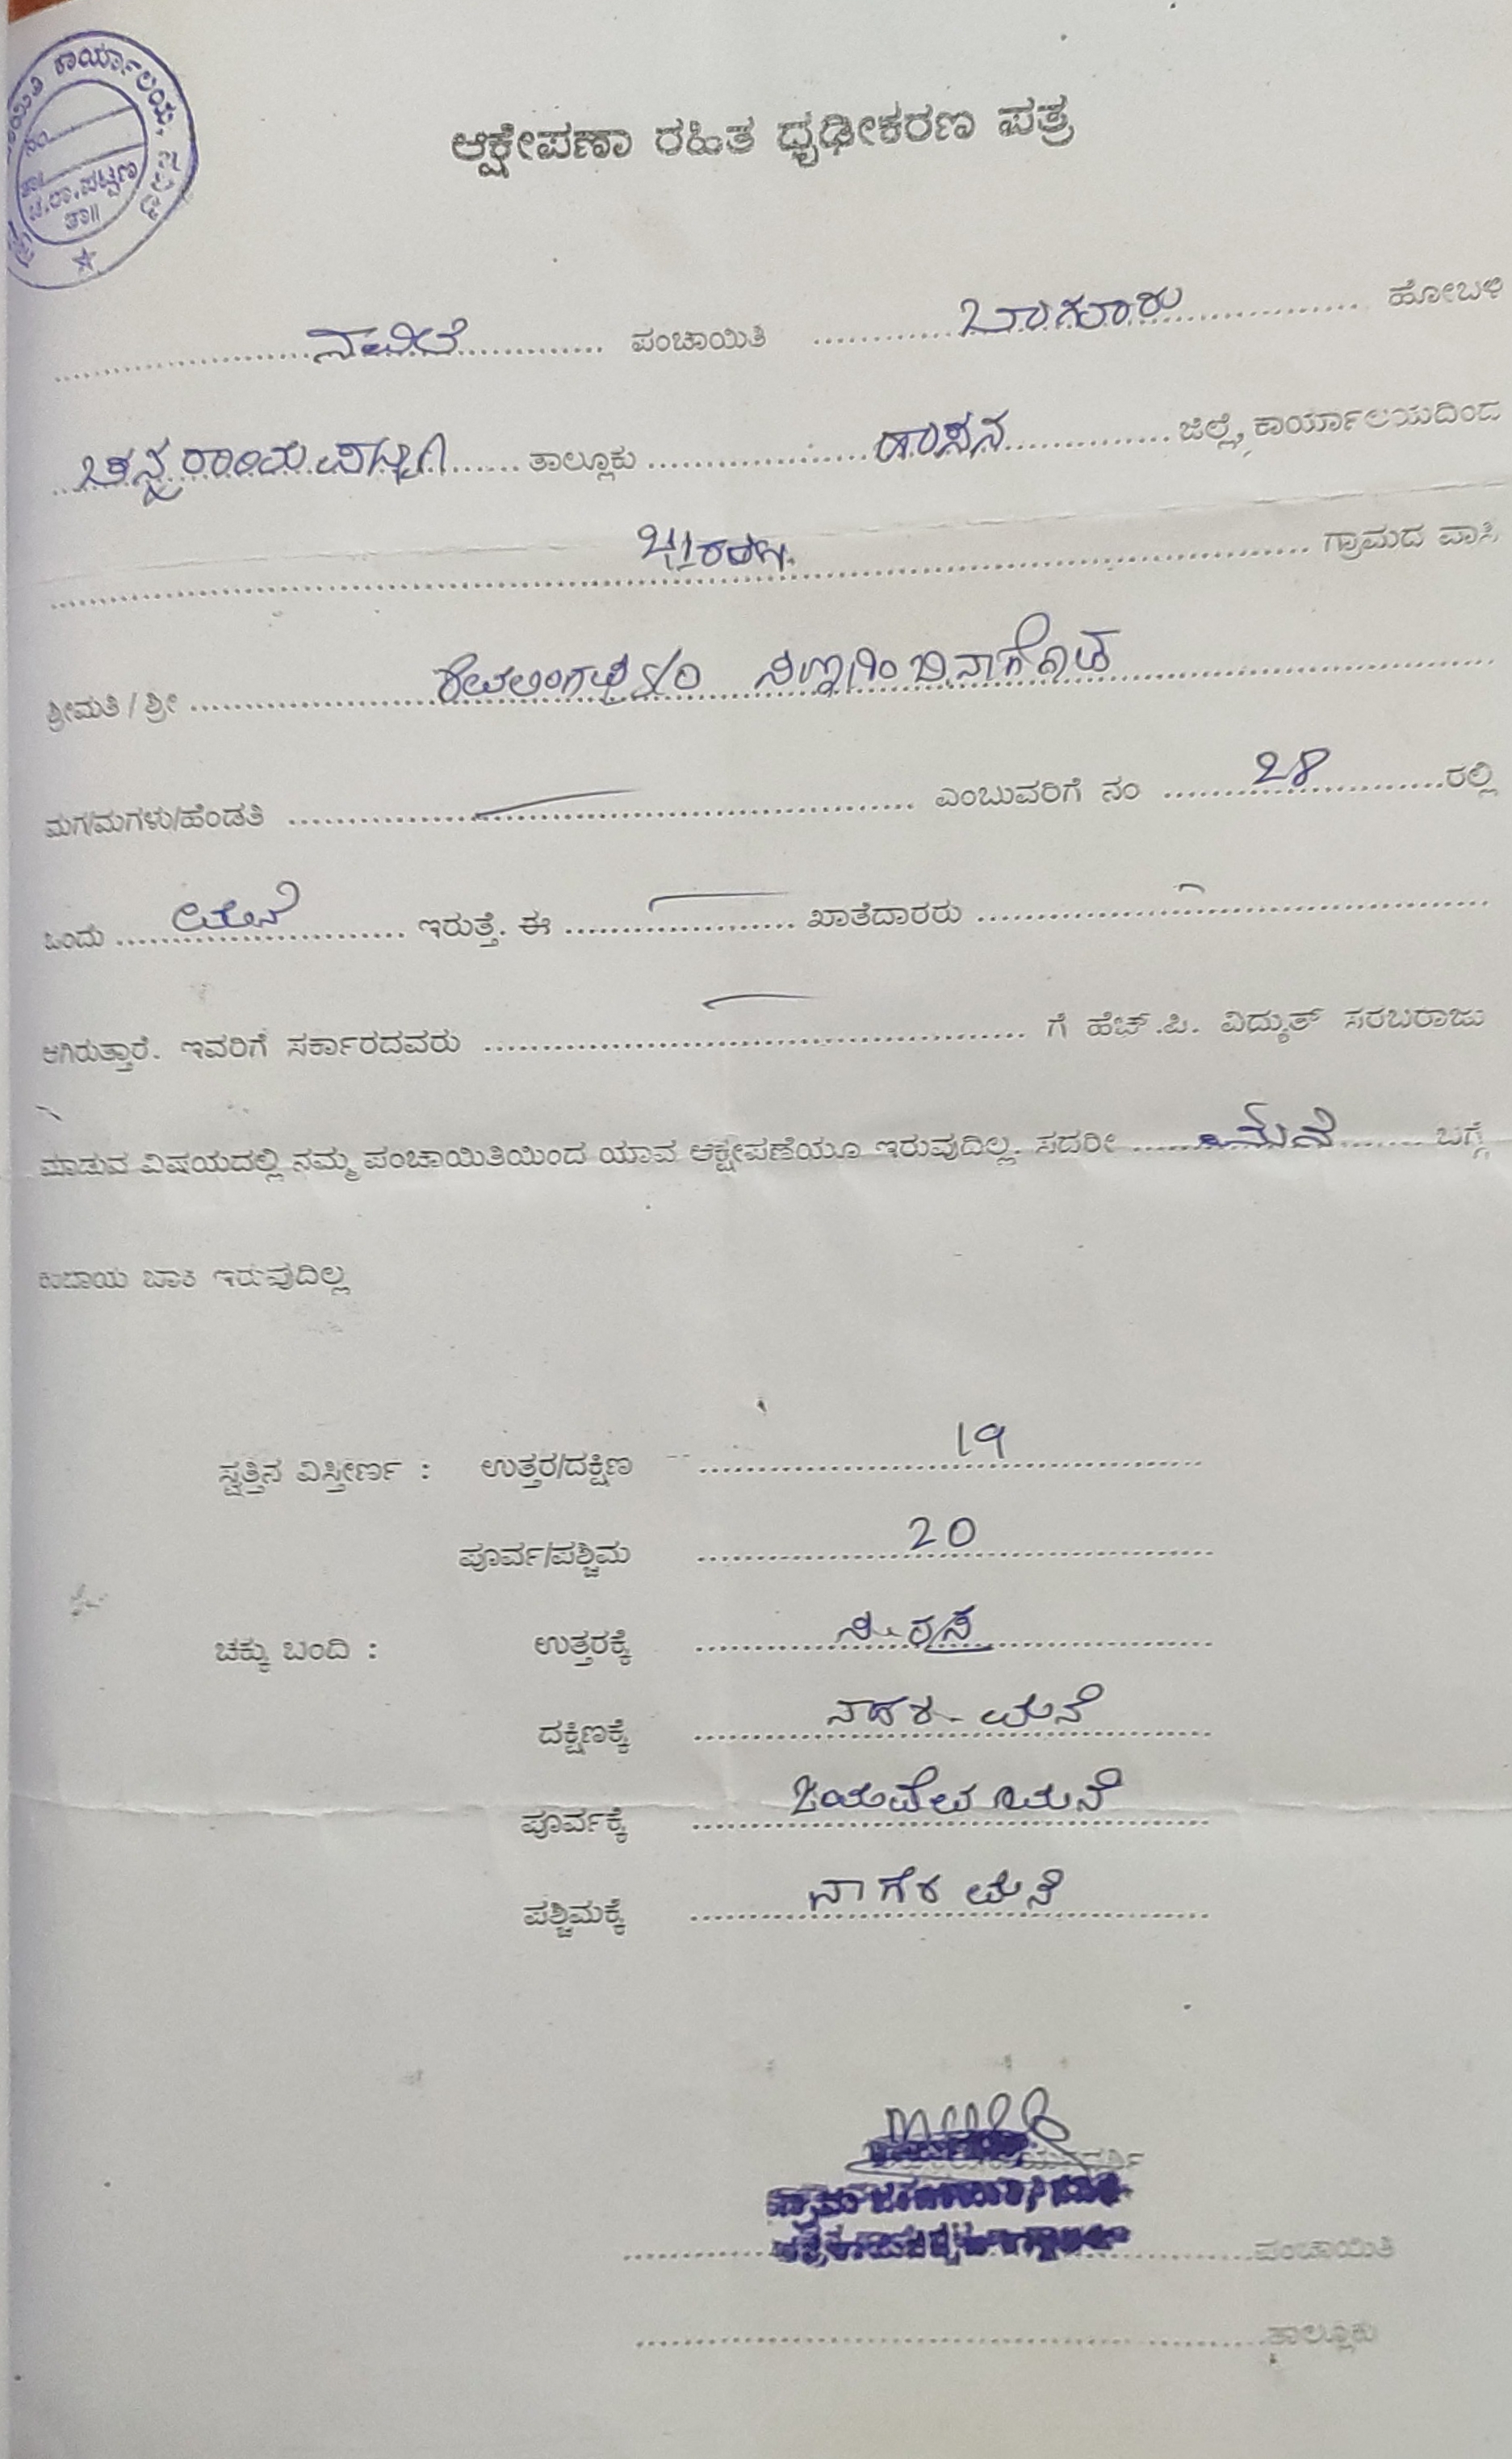 ಕಾರ್ಯಾಲಯ,
ನಂ
ತಾ॥
ಚ.ರಾ.ಪಟ್ಟಣ
ತಾ॥
ಆಕ್ಷೇಪಣಾ ರಹಿತ ಧೃಢೀಕರಣ ಪತ್ರ
ನವಿಲೆ ಪಂಚಾಯಿತಿ ಬಾಗೂರು ಹೋಬಳಿ
ಚನ್ನರಾಯಪಟ್ಟಣ ತಾಲ್ಲೂಕು ಹಾಸನ ಜಿಲ್ಲೆ, ಕಾರ್ಯಾಲಯದಿಂದ
ಗ್ರಾಮದ ವಾಸಿ
ಶ್ರೀಮತಿ / ಶ್ರೀ
ಮಗ/ಮಗಳು/ಹೆಂಡತಿ ಎಂಬುವರಿಗೆ ನಂ 28 ರಲ್ಲಿ
ಒಂದು ಮನೆ ಇರುತ್ತೆ. ಈ ಖಾತೆದಾರರು
ಆಗಿರುತ್ತಾರೆ. ಇವರಿಗೆ ಸರ್ಕಾರದವರು ಗೆ ಹೆಚ್.ಪಿ. ವಿದ್ಯುತ್ ಸರಬರಾಜು
ಮಾಡುವ ವಿಷಯದಲ್ಲಿ ನಮ್ಮ ಪಂಚಾಯಿತಿಯಿಂದ ಯಾವ ಆಕ್ಷೇಪಣೆಯೂ ಇರುವುದಿಲ್ಲ. ಸದರೀ ಮನೆ ಬಗ್ಗೆ
ಕಂದಾಯ ಬಾಕಿ ಇರುವುದಿಲ್ಲ
ಸ್ವತ್ತಿನ ವಿಸ್ತೀರ್ಣ : ಉತ್ತರ/ದಕ್ಷಿಣ 19
ಪೂರ್ವ/ಪಶ್ಚಿಮ 20
ಚಕ್ಕು ಬಂದಿ : ಉತ್ತರಕ್ಕೆ
ದಕ್ಷಿಣಕ್ಕೆ ಮನೆ
ಪೂರ್ವಕ್ಕೆ ಮನೆ
ಪಶ್ಚಿಮಕ್ಕೆ ನಾಗೆಶ ಮನೆ
ಪಂಚಾಯಿತಿ
ತಾಲ್ಲೂಕು